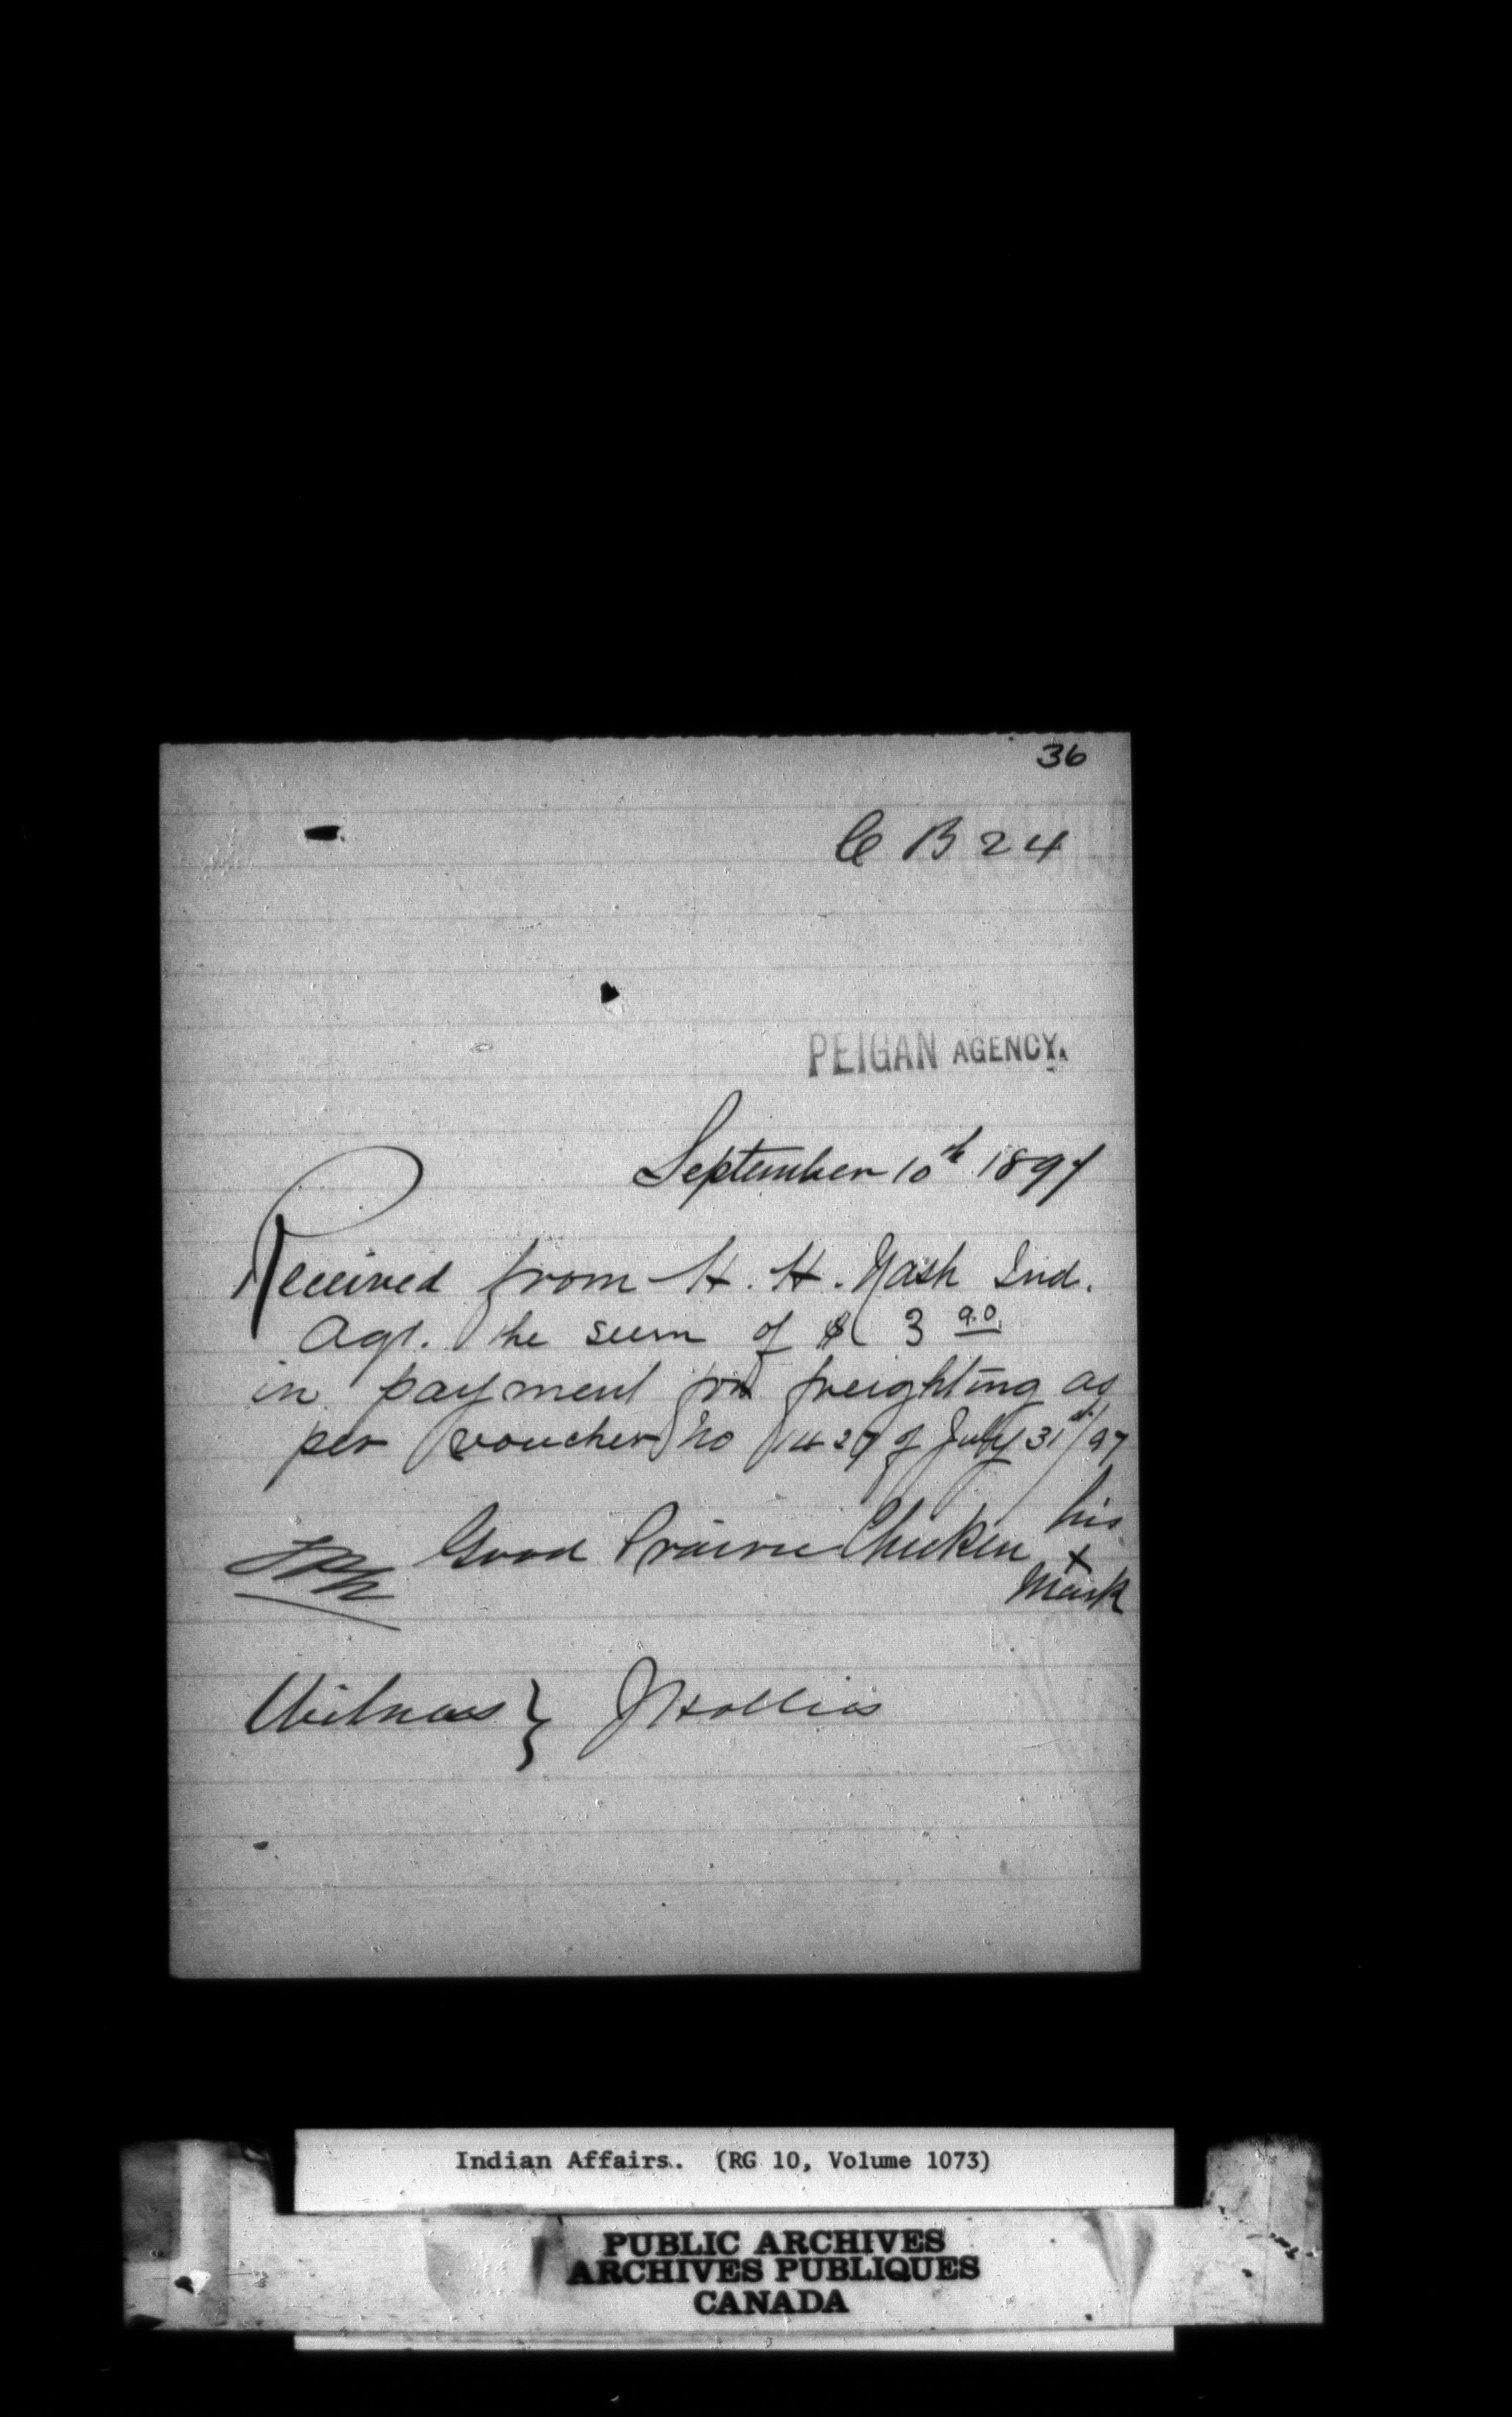 36
C B 24
PEIGAN AGENCY.
September 10th 1897
Received from H. H. Nash Ind.
Agt. the sum of $ 3 90
in payment for freighting as
per voucher No 1427 of July 31st/97
Good Prairie Chicken his
x
mark
Witness } J Hollies
Indian Affairs. (RG 10, Volume 1073)
PUBLIC ARCHIVES
ARCHIVES PUBLIQUES
CANADA